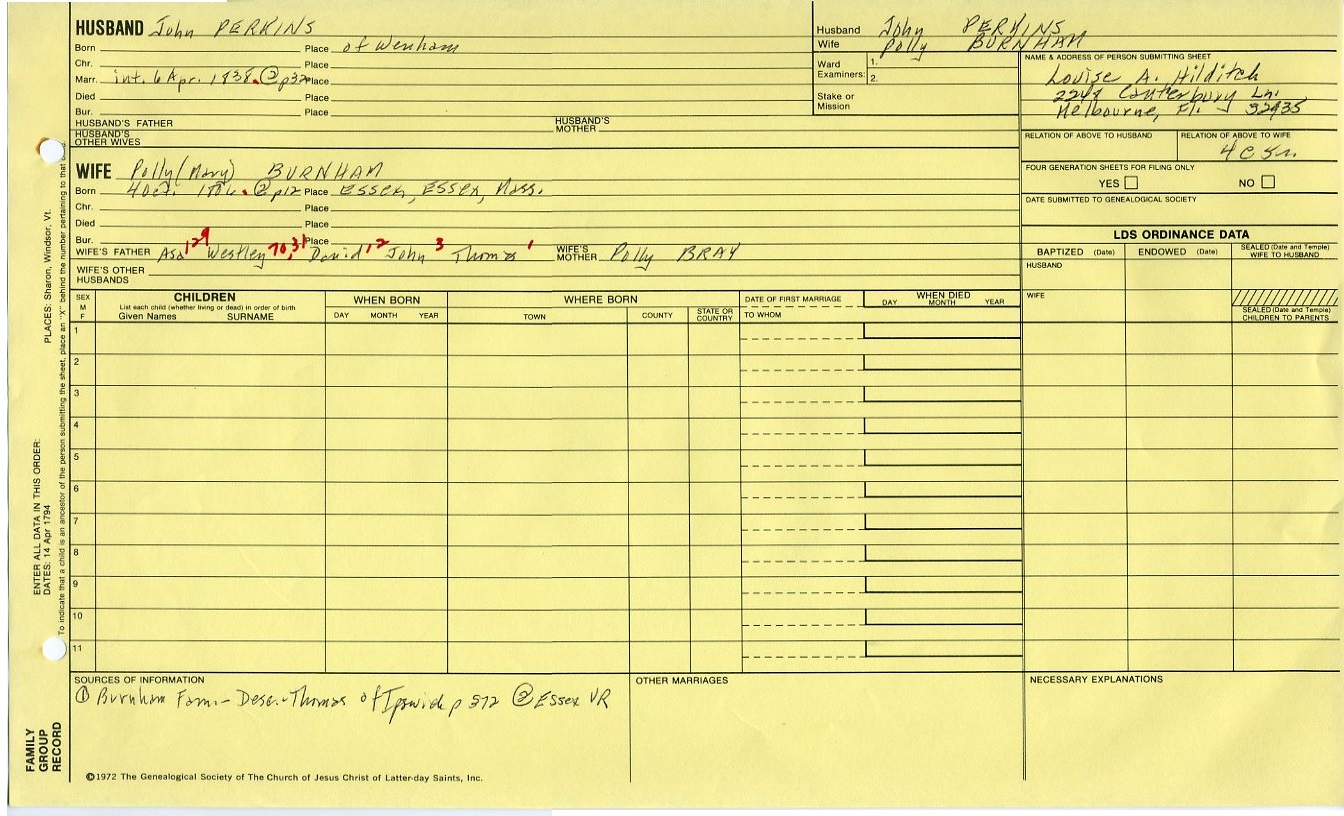 HUSBAND John PERKINS
Born Place of Wenham
Chr. Place
Marr. int. 6 Apr. 1838. ② p32 Place
Died Place
Bur. Place
HUSBAND'S FATHER HUSBAND'S MOTHER
HUSBAND'S OTHER WIVES
Husband John PERKINS
Wife Polly BURNHAM
Ward 1.
Examiners: 2.
Stake or Mission
NAME & ADDRESS OF PERSON SUBMITTING SHEET
Louise A. Hilditch
2248 Canterbury Ln.
Melbourne, Fl. 32935
RELATION OF ABOVE TO HUSBAND RELATION OF ABOVE TO WIFE
4 C 5 r.
FOUR GENERATION SHEETS FOR FILING ONLY
YES NO
DATE SUBMITTED TO GENEALOGICAL SOCIETY
WIFE Polly (Mary) BURNHAM
Born 4 Oct. ② p12 Place ESSEX, ESSEX, Mass.
Chr. Place
Died Place
Bur. Place
WIFE'S FATHER Asa 129 Westley 70,31 David 12 John 3 Thomas 1 WIFE'S MOTHER Polly BRAY
WIFE'S OTHER HUSBANDS
LDS ORDINANCE DATA
BAPTIZED (Date) ENDOWED (Date) SEALED (Date and Temple) WIFE TO HUSBAND
HUSBAND
WIFE
SEALED (Date and Temple) CHILDREN TO PARENTS
SEX M F
CHILDREN
List each child (whether living or dead) in order of birth
Given Names SURNAME
WHEN BORN
DAY MONTH YEAR
WHERE BORN
TOWN COUNTY STATE OR COUNTRY
DATE OF FIRST MARRIAGE
TO WHOM
WHEN DIED
DAY MONTH YEAR
1
2
3
4
5
6
7
8
9
10
11
SOURCES OF INFORMATION
① Burnham Fam - Desc. Thomas of Ipswich p 372 ② Essex VR
OTHER MARRIAGES
NECESSARY EXPLANATIONS
©1972 The Genealogical Society of The Church of Jesus Christ of Latter-day Saints, Inc.
FAMILY GROUP RECORD
ENTER ALL DATA IN THIS ORDER:
DATES: 14 Apr 1794
PLACES: Sharon, Windsor, Vt.
To indicate that a child is an ancestor of the person submitting the sheet, place an "X" behind the number pertaining to that